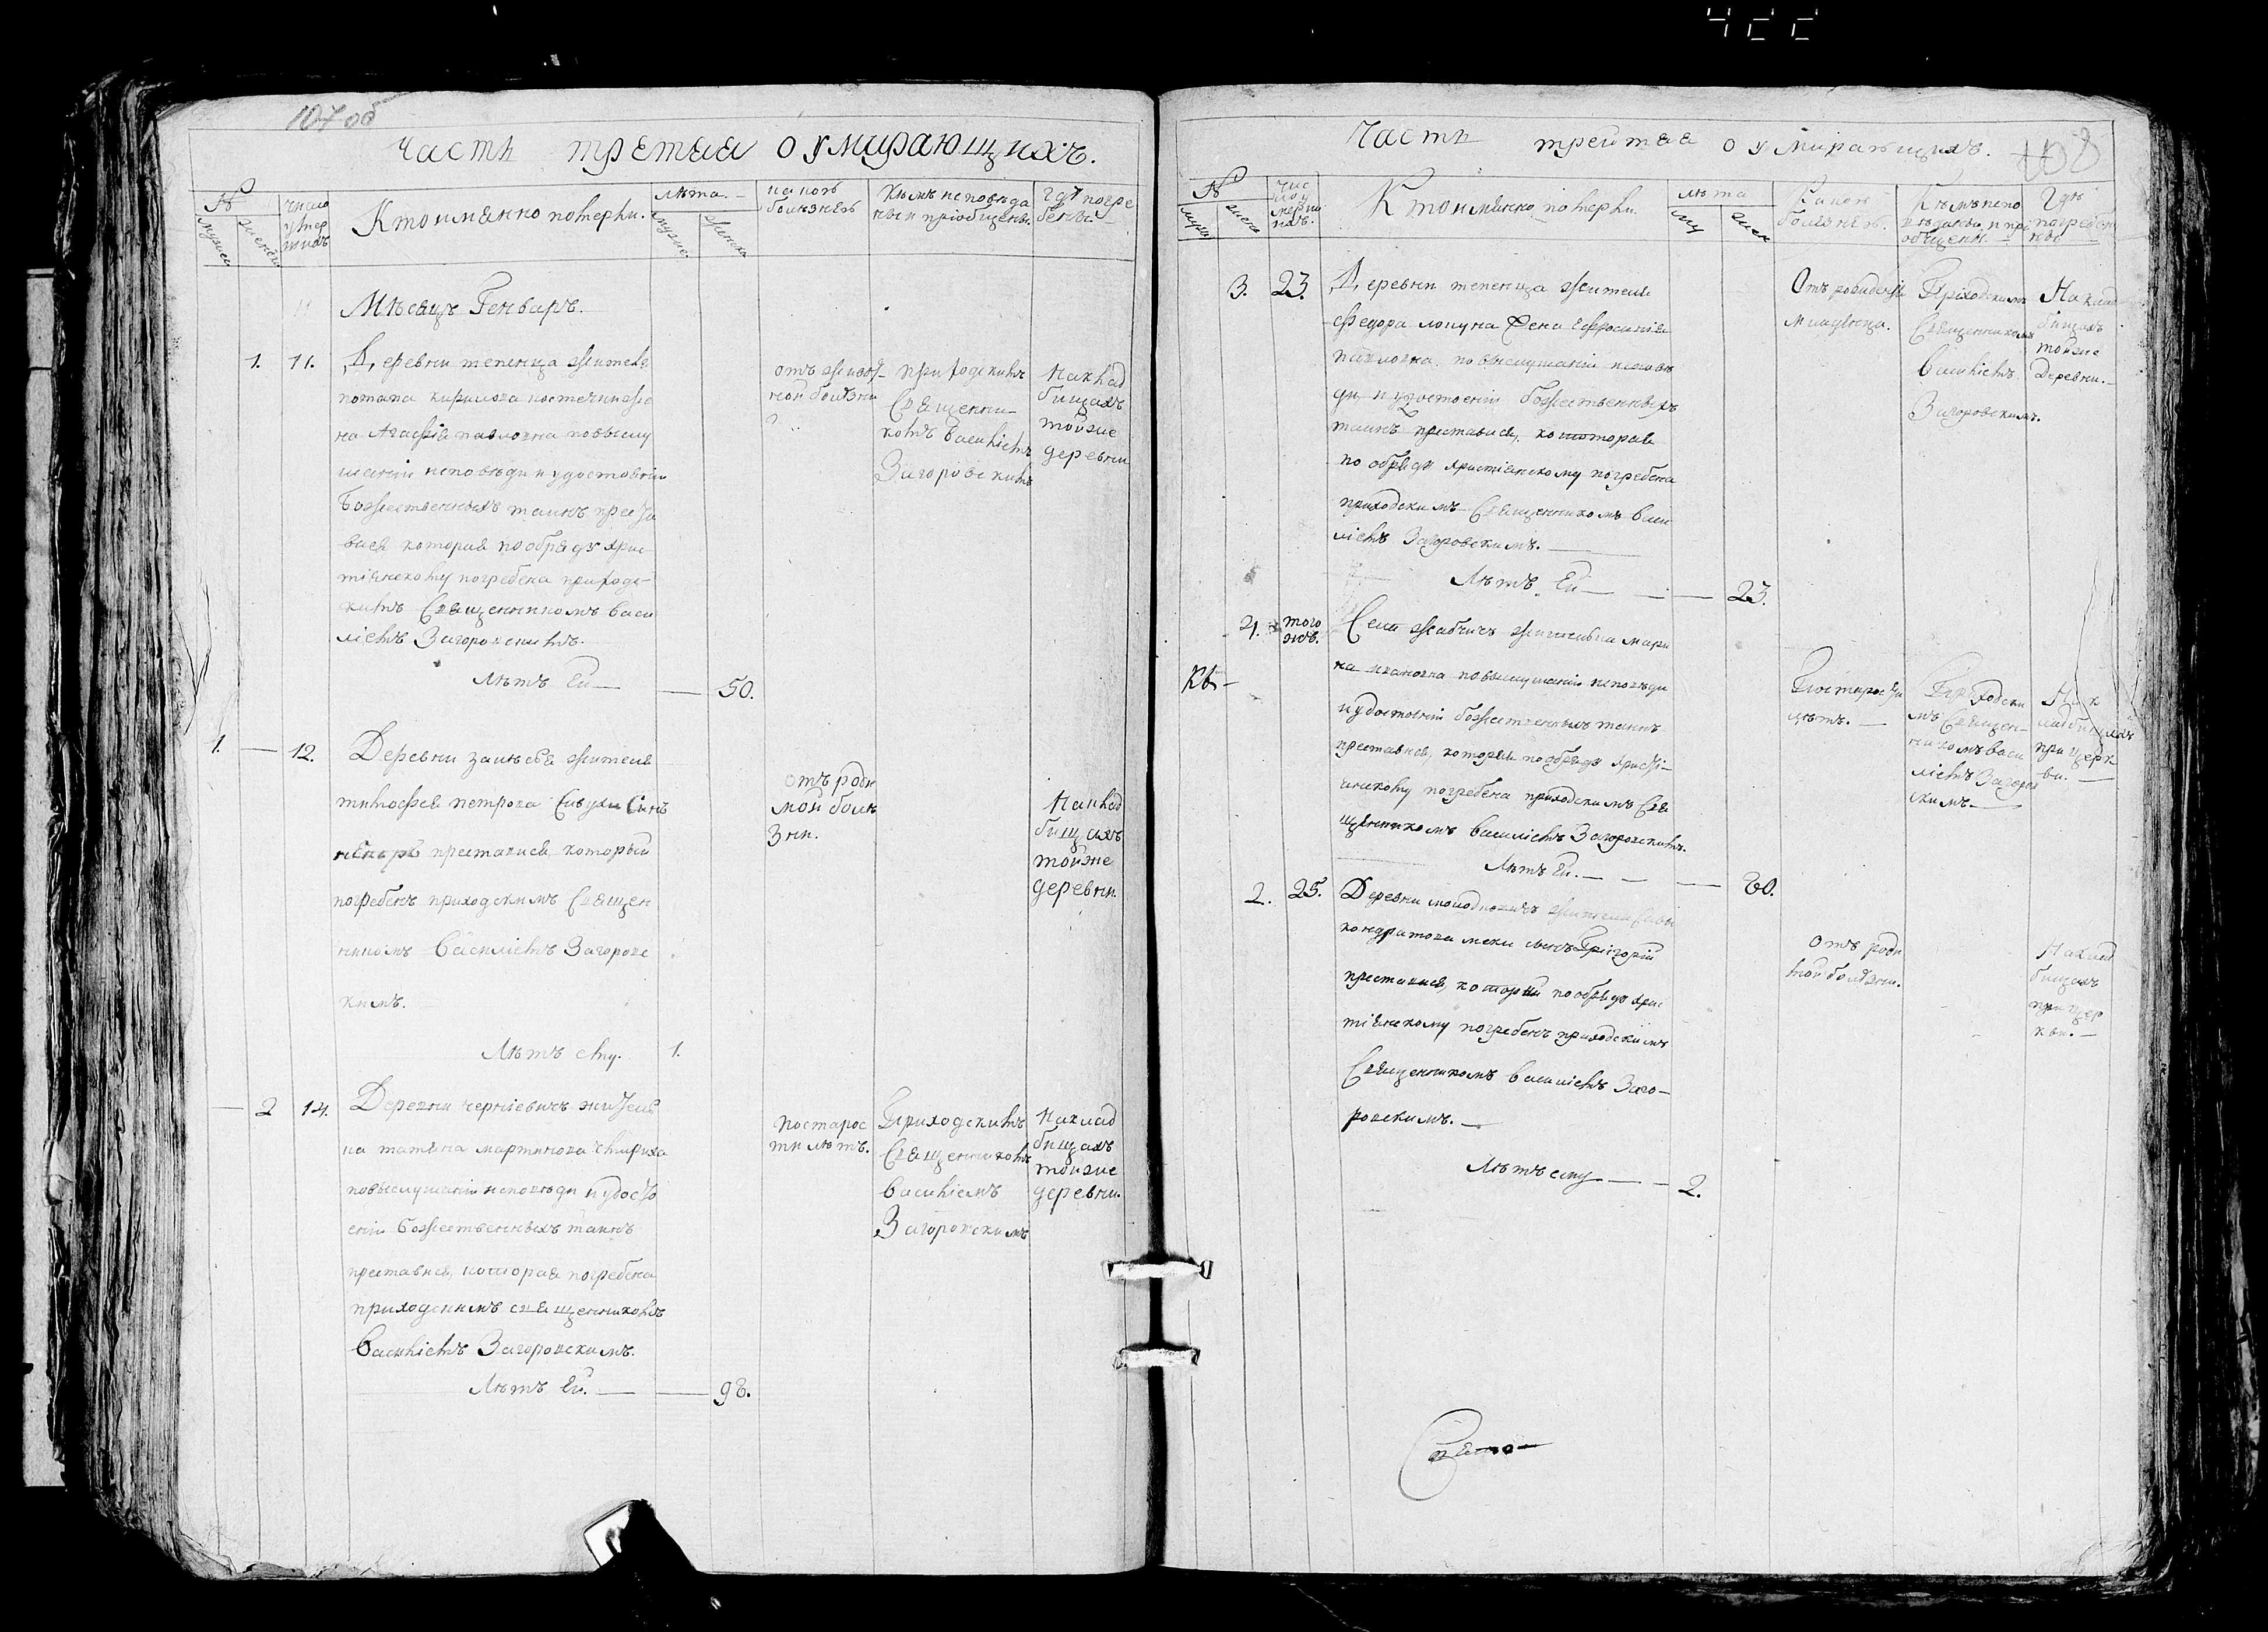 422
107 об
часть третая о умирающихъ.
№
мужеск
женск
число
умер
шихъ
Кто имянно померли.
лѣта.
мужес
женска
какою
болѣзнею
Кѣмъ исповѣда
ны и пріобщены.
Гдѣ погре
бены.
Мѣсяцъ Генварь.
1. 11. Деревни тепенца жителя
потапа кирилова костечки же
на Агафія павловна по выслу
шаніи исповѣди и удостоеніи
Божественныхъ таинъ преста
вися которая по обряду хрис
тіянскому погребена приходс
кимъ Священникомъ Васи
ліемъ Загоровскимъ.
Лѣтъ Ей — 50.
отъ живот
ной болѣзни
приходскимъ
Священни
комъ Василіемъ
Загоровскимъ
На клад
бищахъ
тойже
деревни
1. — 12. Деревни залѣсья жителя
тимофея петрова Сивухи Сынъ
преставися, который
погребенъ приходскимъ Священ
никомъ Василіемъ Загоровс
кимъ.
Лѣтъ ему. 1.
отъ роди
мой болѣ
зни.
На клад
бищахъ
тойже
деревни.
— 2 14. Деревни черніевичъ жителъ
ка татіяна мартинова
по выслушаніи исповѣди и удосто
еніи Божественныхъ таинъ
преставися, которая погребена
приходскимъ священникомъ
Василіемъ Загоровскимъ.
Лѣтъ Ей. — 98.
по старос
ти лѣтъ.
Приходскимъ
Священникомъ
Василіемъ
Загоровскимъ
На клад
бищахъ
тойже
деревни.
108
Часть третая о умирающихъ.
№
муж
женс
Чис
ло у
мерш
ихъ.
Кто имянно померли.
лѣта
му
жен
Какою
болѣзнею.
Кѣмъ испо
вѣданы и прі
общены.
Гдѣ
погребен
ны
3. 23. Деревни тепенца жителя
Федора лопуна жена Ефросинія
павловна по выслушаніи исповѣ
ди и удостоеніи божественныхъ
таинъ преставися, которая
по обряду христіянскому погребена
приходскимъ Священникомъ Васи
ліемъ Загоровскимъ.
Лѣтъ Ей — 23.
Отъ рожденія
младенца.
Приходскимъ
Священникомъ
Василіемъ
Загоровскимъ.
На клад
бищахъ
тойже
Деревни.
4. того
жъ.
Села жабчичъ жителька мари
на ивановна по выслушаніи исповѣди
и удостоеніи божественныхъ таинъ
преставися, которая по обряду христі
янскому погребена приходскимъ Свя
щенникомъ Василіемъ Загоровскимъ.
Лѣтъ Ей. — 80.
По старости
лѣтъ.
Приходски
мъ Священ
никомъ Васи
ліемъ Загоров
скимъ
На к
ладбищахъ
при церк
ви.
2. 25. Деревни молодковичъ жителя Савы
кондратова сынъ Григорій
преставися, который по обряду хрис
тіянскому погребенъ приходскимъ
Священникомъ Василіемъ Заго
ровскимъ.
Лѣтъ ему — 2.
отъ роди
мой болѣзни.
На клад
бищахъ
при цер
кви.